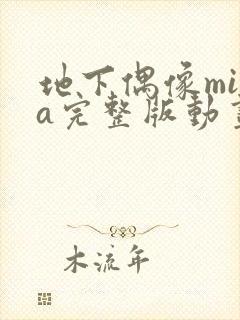 地下偶像mi
a完整版动
木流年